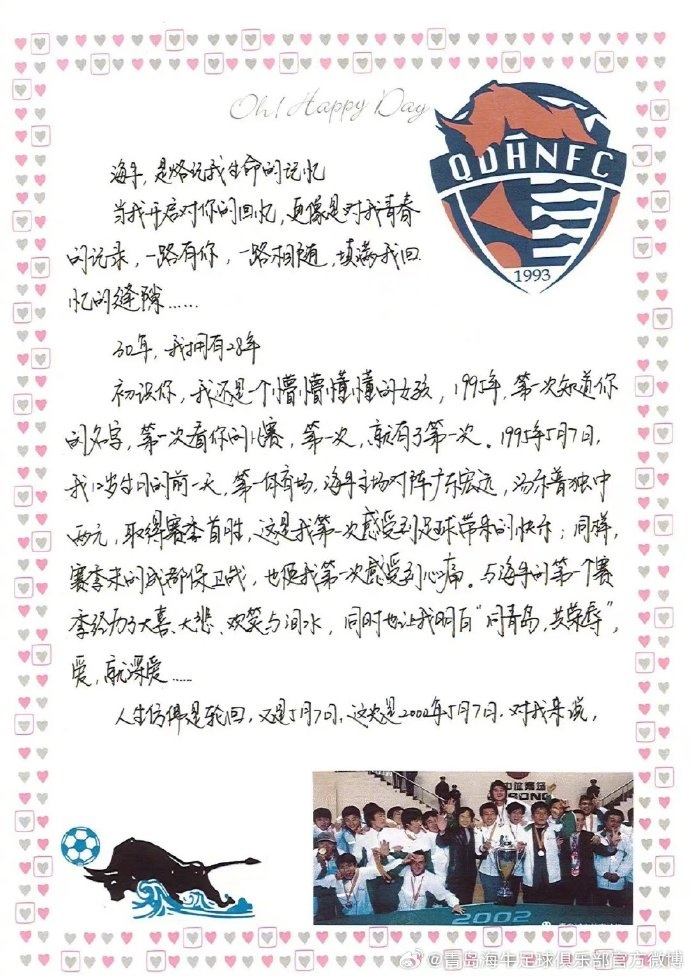 Oh! Happy Day
QDHNFC
1993
海牛，是烙印我生命的记忆
当我开启对你的回忆，更像是对我青春
的记录，一路有你，一路相随，填满我回
忆的缝隙……
30年，我拥有28年
初识你，我还是个懵懵懂懂的女孩，1995年，第一次知道你
的名字，第一次看你的比赛，第一次，就有了第一次。1995年5月7日，
我12岁生日的前一天，第一体育场，海牛主场对阵广东宏远，汤乐普独中
两元，取得赛季首胜，这是我第一次感受到足球带来的快乐；同样，
赛季末的成都保卫战，也使我第一次感受到心痛。与海牛的第一个赛
季经历了大喜、大悲、欢笑与泪水，同时也让我明白“同青岛，共荣辱”，
爱，就深爱……
人生仿佛是轮回，又是5月7日，这次是2002年5月7日，对我来说，
2002
@青岛海牛足球俱乐部官方微博